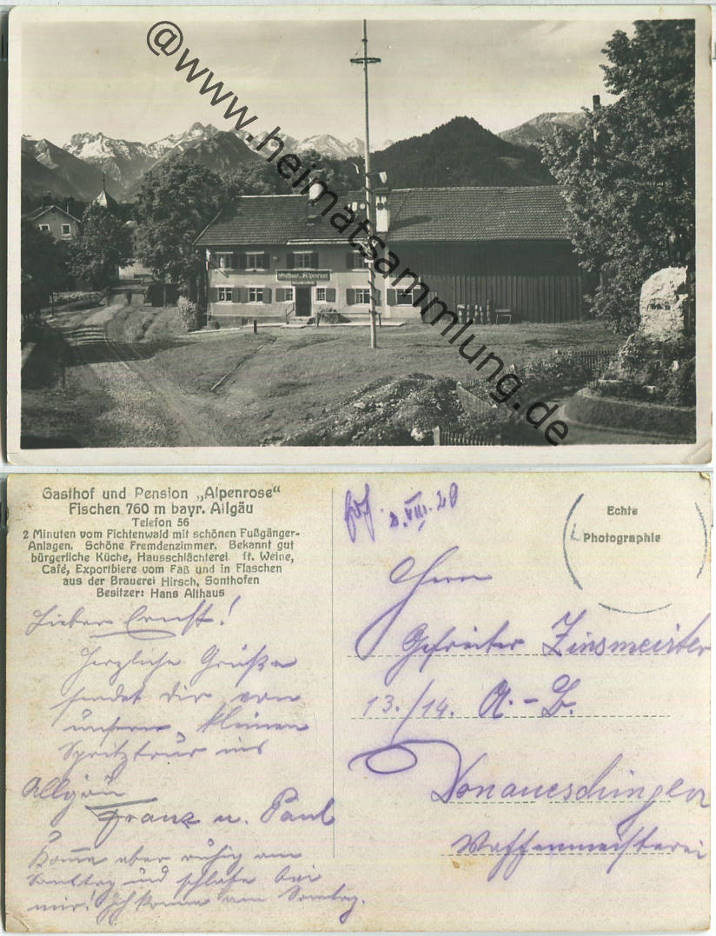 @www.heimatsammlung.de
Gasthaus z. Alpenrose
Gasthof und Pension „Alpenrose“
Fischen 760 m bayr. Allgäu
Telefon 56
2 Minuten vom Fichtenwald mit schönen Fußgänger-
Anlagen. Schöne Fremdenzimmer. Bekannt gut
bürgerliche Küche, Hausschlächterei ff. Weine,
Café, Exportbiere vom Faß und in Flaschen
aus der Brauerei Hirsch, Sonthofen
Besitzer: Hans Althaus
Lieber Ernst!
Herzliche Grüße
sendet dir von
unserer kleinen
Spritztour ins
Allgäu
Franz u. Paul
Komme aber ruhig am
Samstag und schlafe bei
mir! Ich komme am Sonntag.
Echte
Photographie
Herrn
Gefreiter Zinsmeister
13./14. A.-B.
Donaueschingen
Waffenmeisterei